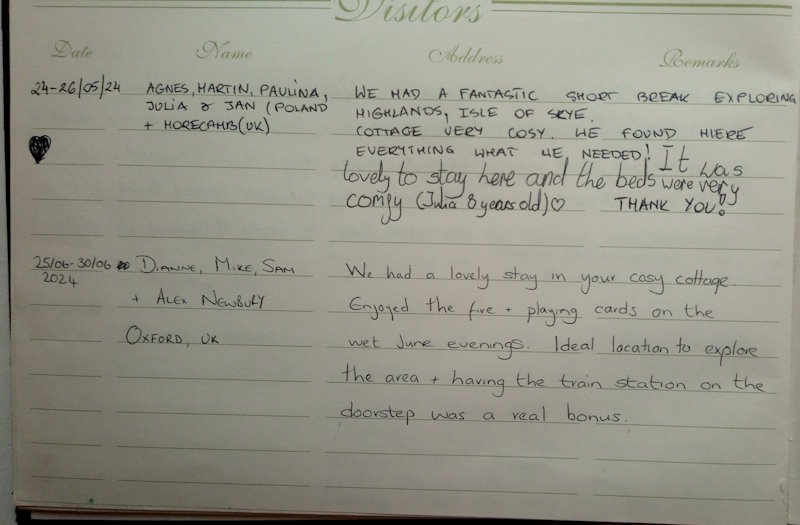 Visitors
Date Name Address Remarks
24-26/05/24 AGNES, MARTIN, PAULINA, WE HAD A FANTASTIC SHORT BREAK EXPLORING
JULIA & JAN (POLAND HIGHLANDS, ISLE OF SKYE.
+ MORECAMB(UK) COTTAGE VERY COSY. WE FOUND HERE
EVERYTHING WHAT WE NEEDED! It was
lovely to stay here and the beds were very
comfy (Julia 8 years old)♡ THANK YOU!
25/06-30/06 DIANNE, MIKE, SAM We had a lovely stay in your cosy cottage.
2024 + ALEX NEWBURY Enjoyed the fire + playing cards on the
OXFORD, UK wet June evenings. Ideal location to explore
the area + having the train station on the
doorstep was a real bonus.